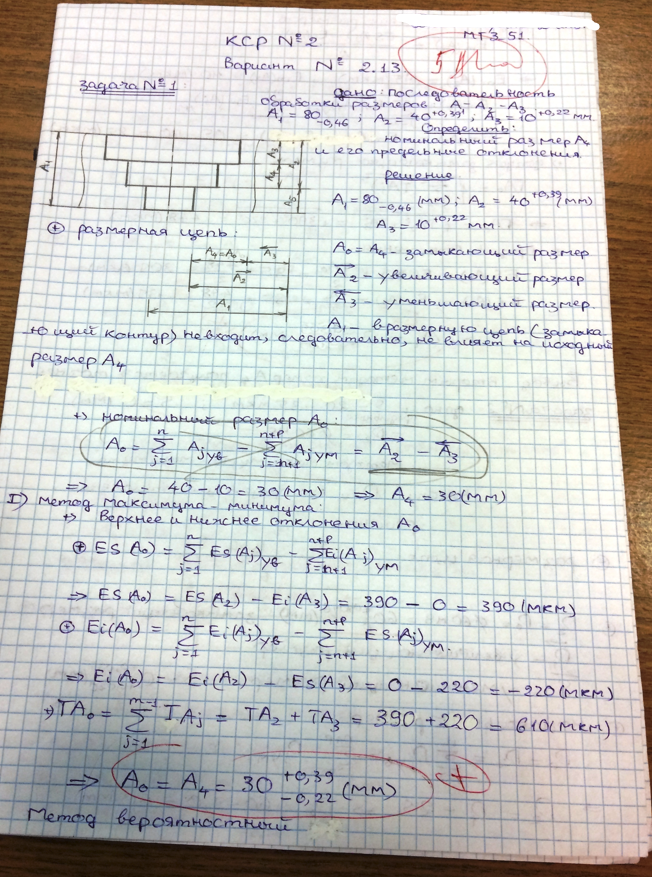 МТ3 51
КСР №2
Вариант № 2.13
Задача №1
дано: последовательность
обработки размеров A₁-A₂-A₃
A₁ = 80₋₀,₄₆ ; A₂ = 40⁺⁰,³⁹ ; A₃ = 10⁺⁰,²² мм
Определить:
номинальный размер A₄
и его предельные отклонения
Решение
A₁ = 80₋₀,₄₆ (мм) ; A₂ = 40⁺⁰,³⁹ (мм)
A₃ = 10⁺⁰,²² мм
A₁ A₃ A₄ A₂ A₅
размерная цепь:
A₄=A₀ A₃
A₂
A₁
A₀ = A₄ - замыкающий размер
A₂ - увеличивающий размер
A₃ - уменьшающий размер.
A₁ - в размерную цепь (замыка-
ющий контур) не входит, следовательно, не влияет на исходный
размер A₄
↦ номинальный размер A₀:
A₀ = Σ(j=1..n) Aj ув - Σ(j=n+1..n+p) Aj ум = A₂ - A₃
⇒ A₀ = 40 - 10 = 30 (мм) ⇒ A₄ = 30 (мм)
I) метод максимума-минимума:
↦ Верхнее и нижнее отклонения A₀
⊕ ES(A₀) = Σ(j=1..n) ES(Aj)ув - Σ(j=n+1..n+p) Ei(Aj)ум
⇒ ES(A₀) = ES(A₂) - Ei(A₃) = 390 - 0 = 390 (мкм)
⊕ Ei(A₀) = Σ(j=1..n) Ei(Aj)ув - Σ(j=n+1..n+p) ES(Aj)ум.
⇒ Ei(A₀) = Ei(A₂) - ES(A₃) = 0 - 220 = -220 (мкм)
↦ TA₀ = Σ(j=1..m-1) TAj = TA₂ + TA₃ = 390 + 220 = 610 (мкм)
⇒ A₀ = A₄ = 30 +0,39 -0,22 (мм) +
Метод вероятностный